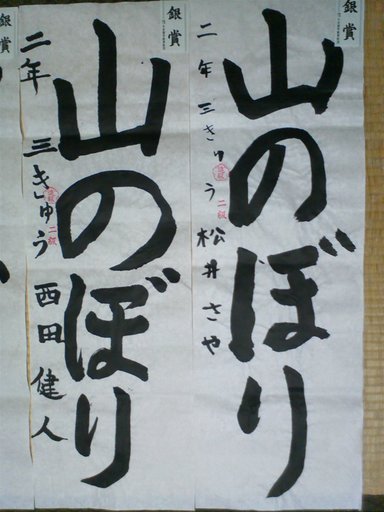 銀賞
山のぼり
二年 三きゅう 松井さや
二級
銀賞
山のぼり
二年 三きゅう 西田健人
二級